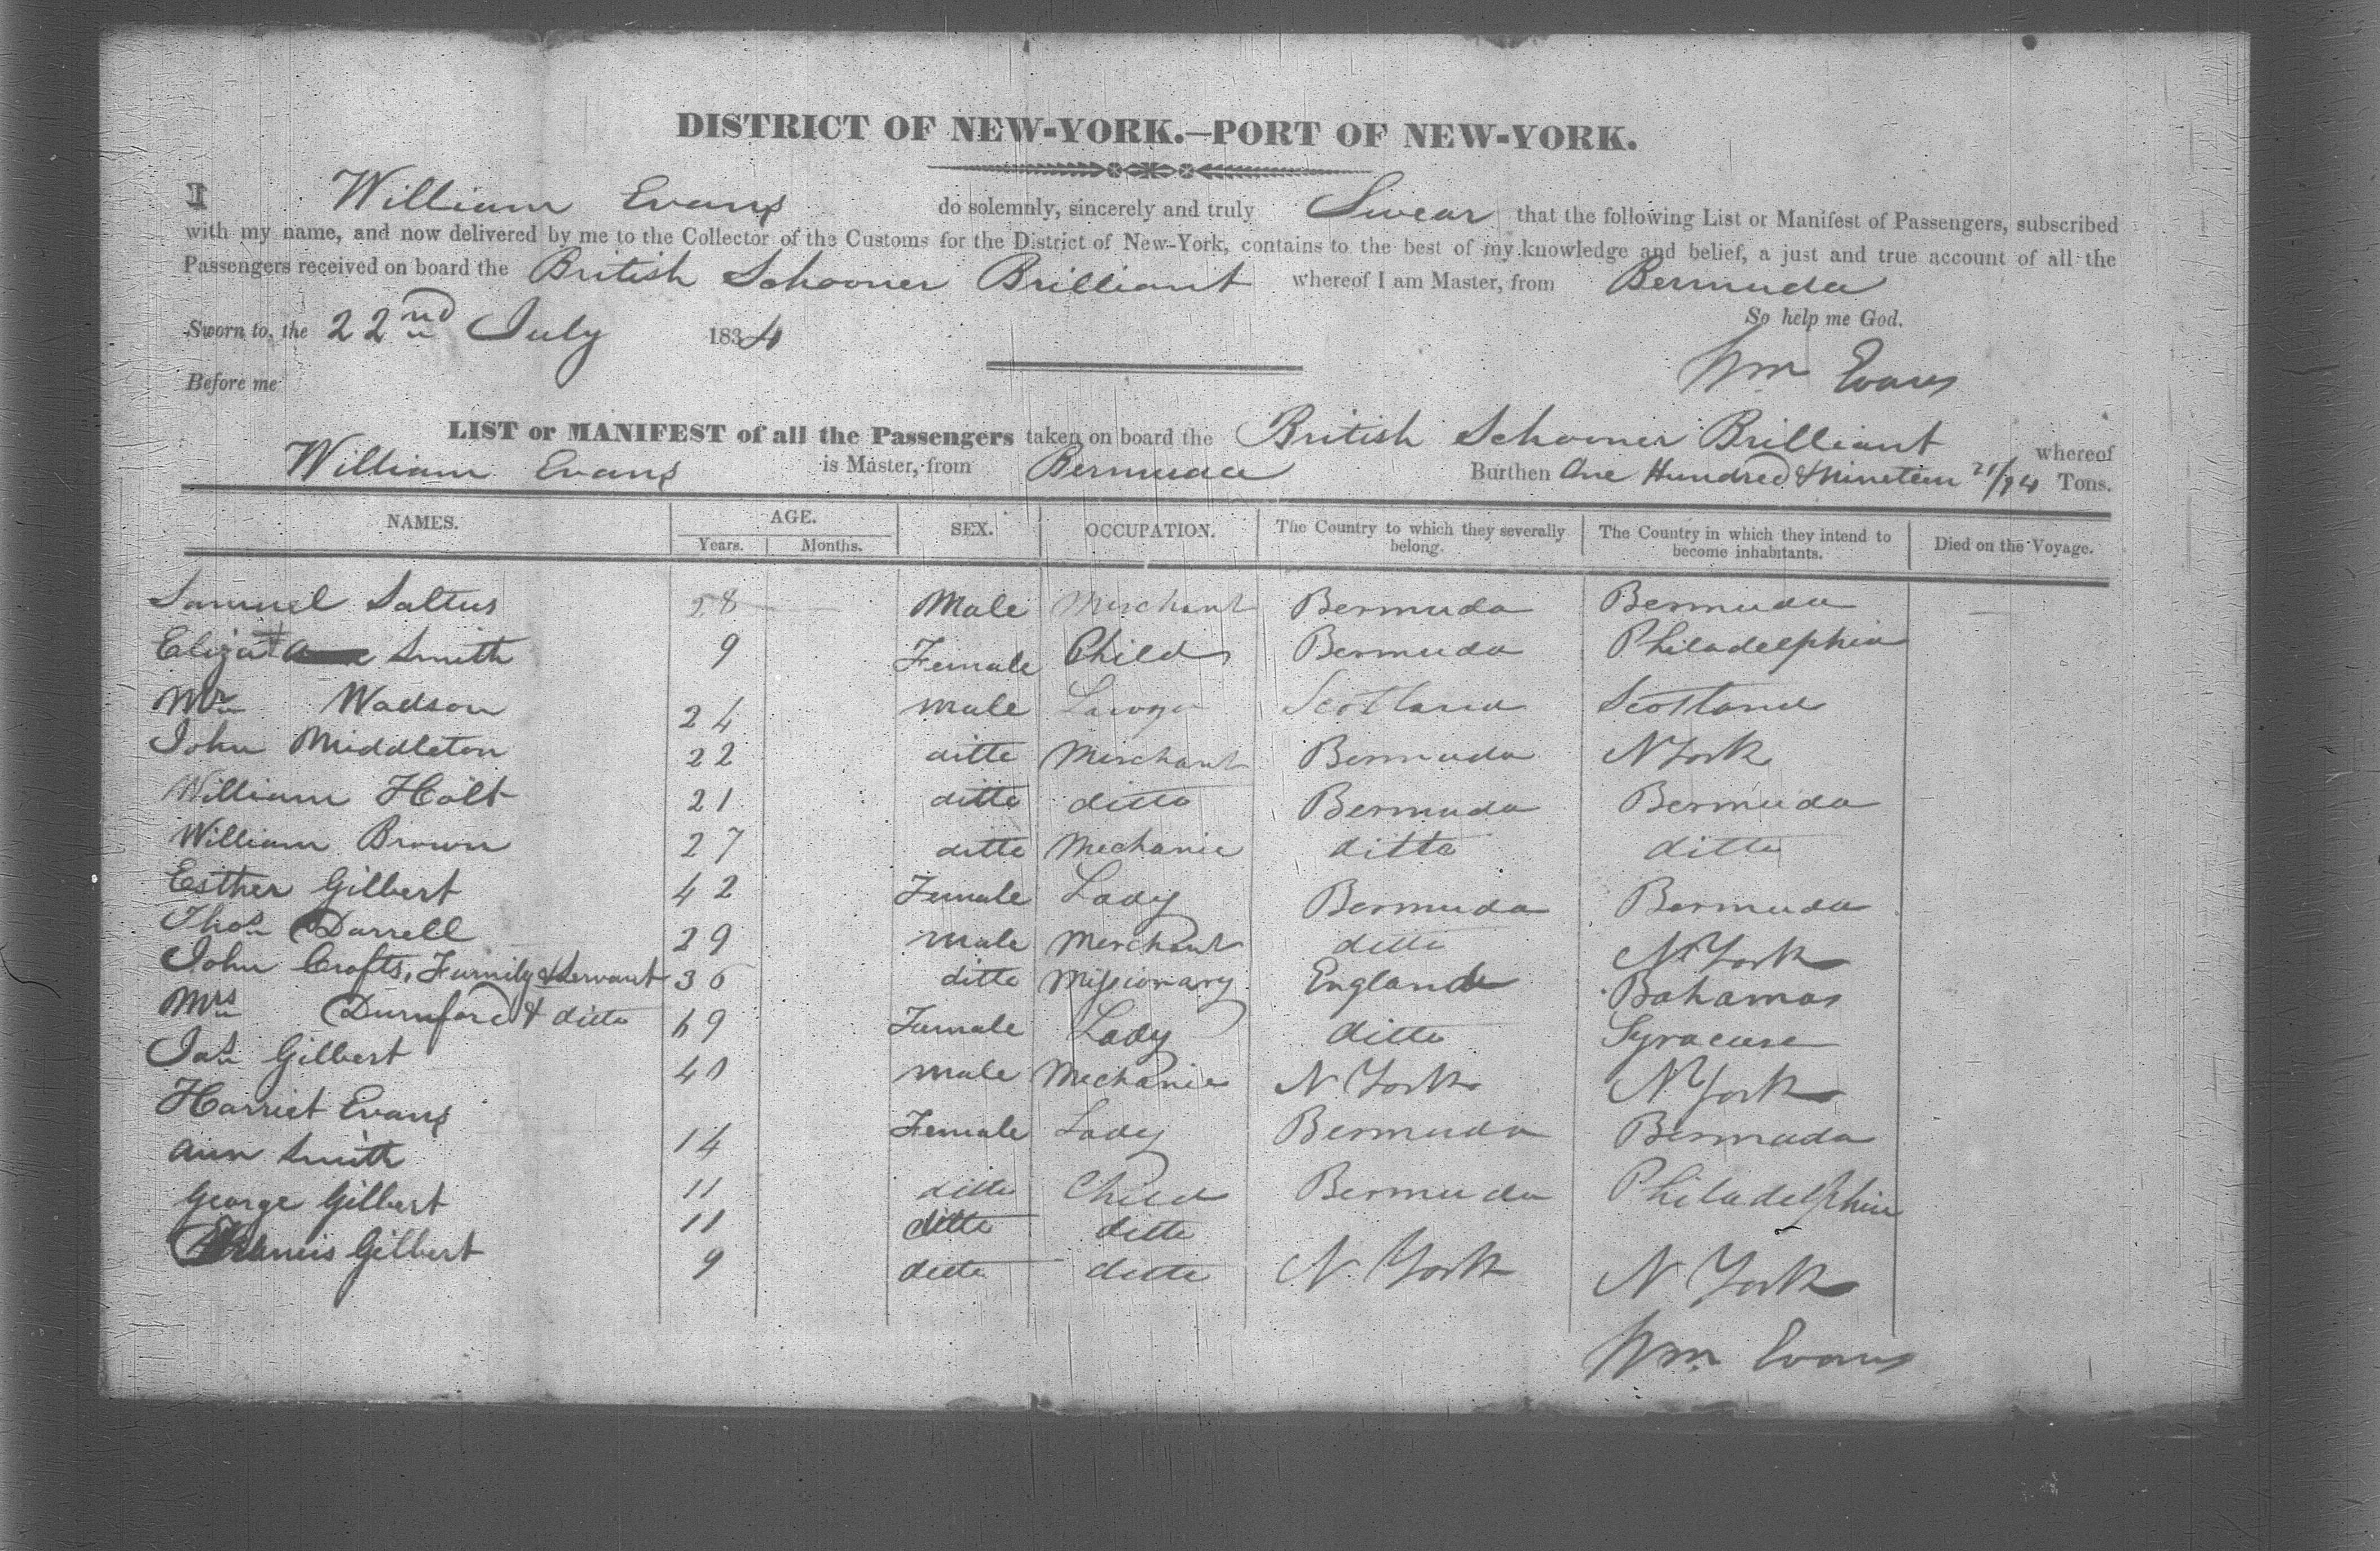 DISTRICT OF NEW-YORK.—PORT OF NEW-YORK.
I William Evans do solemnly, sincerely and truly Swear that the following List or Manifest of Passengers, subscribed
with my name, and now delivered by me to the Collector of the Customs for the District of New-York, contains to the best of my knowledge and belief, a just and true account of all the
Passengers received on board the British Schooner Brilliant whereof I am Master, from Bermuda
So help me God.
Sworn to, the 22nd July 1834
Wm Evans
Before me
LIST or MANIFEST of all the Passengers taken on board the British Schooner Brilliant whereof
William Evans is Master, from Bermuda Burthen One Hundred & Nineteen 21/94 Tons.
NAMES. AGE. SEX. OCCUPATION. The Country to which they severally belong. The Country in which they intend to become inhabitants. Died on the Voyage.
Years. Months.
Samuel Saltus 28 Male Merchant Bermuda Bermuda —
Elizath Smith 9 Female Child Bermuda Philadelphia
Mr Wadson 24 male Lawyer Scotland Scotland
John Middleton 22 ditto Merchant Bermuda N York
William Holt 21 ditto ditto Bermuda Bermuda
William Brown 27 ditto Mechanic ditto ditto
Esther Gilbert 42 Female Lady Bermuda Bermuda
Thos Darrell 29 male Merchant ditto N York
John Crofts, Family & Servant 36 ditto Missionary England Bahamas
Mrs Durnford & ditto 69 Female Lady ditto Syracuse
Jas Gilbert 40 male Mechanic N York N York
Harriet Evans 14 Female Lady Bermuda Bermuda
Ann Smith 11 ditto Child Bermuda Philadelphia
George Gilbert 11 ditto ditto
Francis Gilbert 9 ditto ditto N York N York
Wm Evans